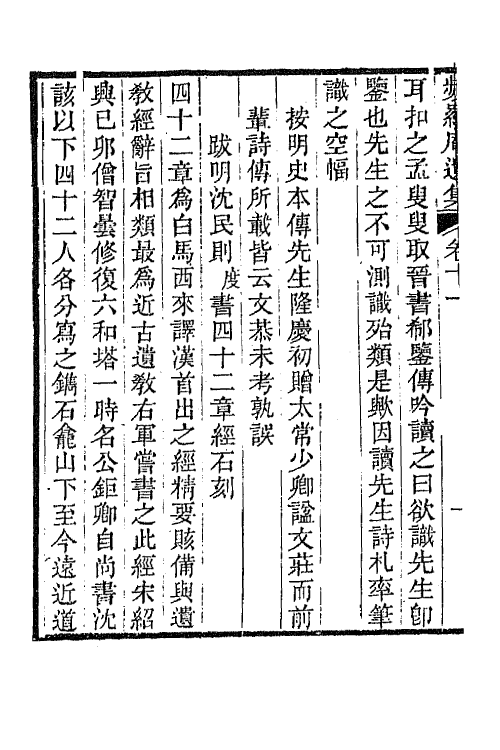 頻羅庵遺集 卷十一 一
耳扣之孟叟叟取晉書郗鑒傳吟讀之曰欲識先生卽
鑒也先生之不可測識殆類是歟因讀先生詩札率筆
識之空幅
按明史本傳先生隆慶初贈太常少卿諡文莊而前
輩詩傳所載皆云文恭未考孰誤
跋明沈民則度書四十二章經石刻
四十二章爲白馬西來譯漢首出之經精要賅備與遺
敎經辭旨相類最爲近古遺敎右軍嘗書之此經宋紹
興己卯僧智曇修復六和塔一時名公鉅卿自尚書沈
該以下四十二人各分寫之鐫石龕山下至今遠近道